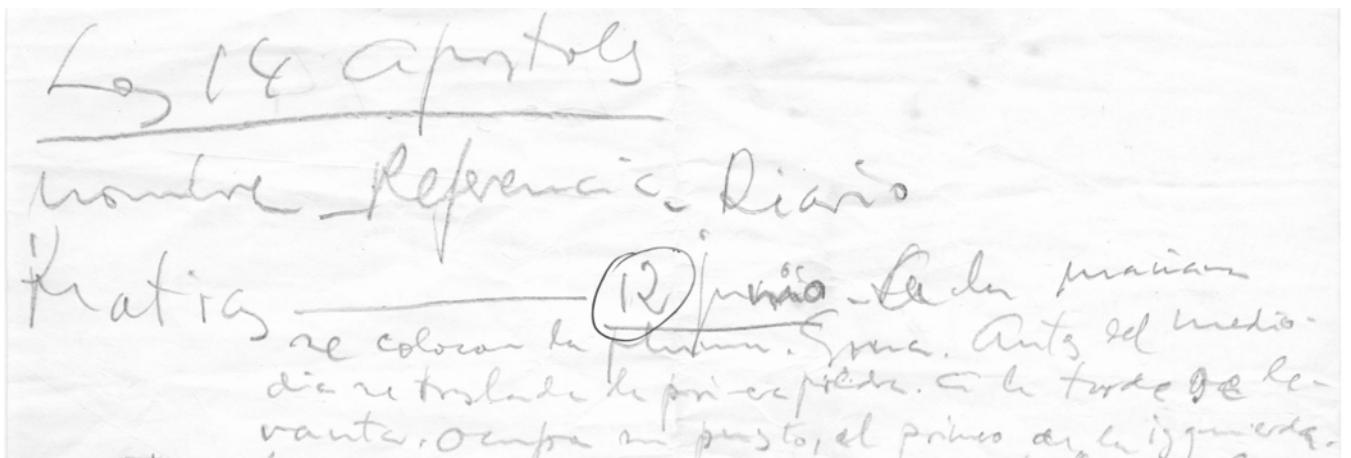 Los 14 apostols
nombre - Referencia - Diario
Matias — 12 junio - a la mañana
se colocan la pluma. Grua. Antes del medio-
dia se traslada la primera piedra. a la tarde se le-
vanta. Ocupa su puesto, el primero de la izquierda.